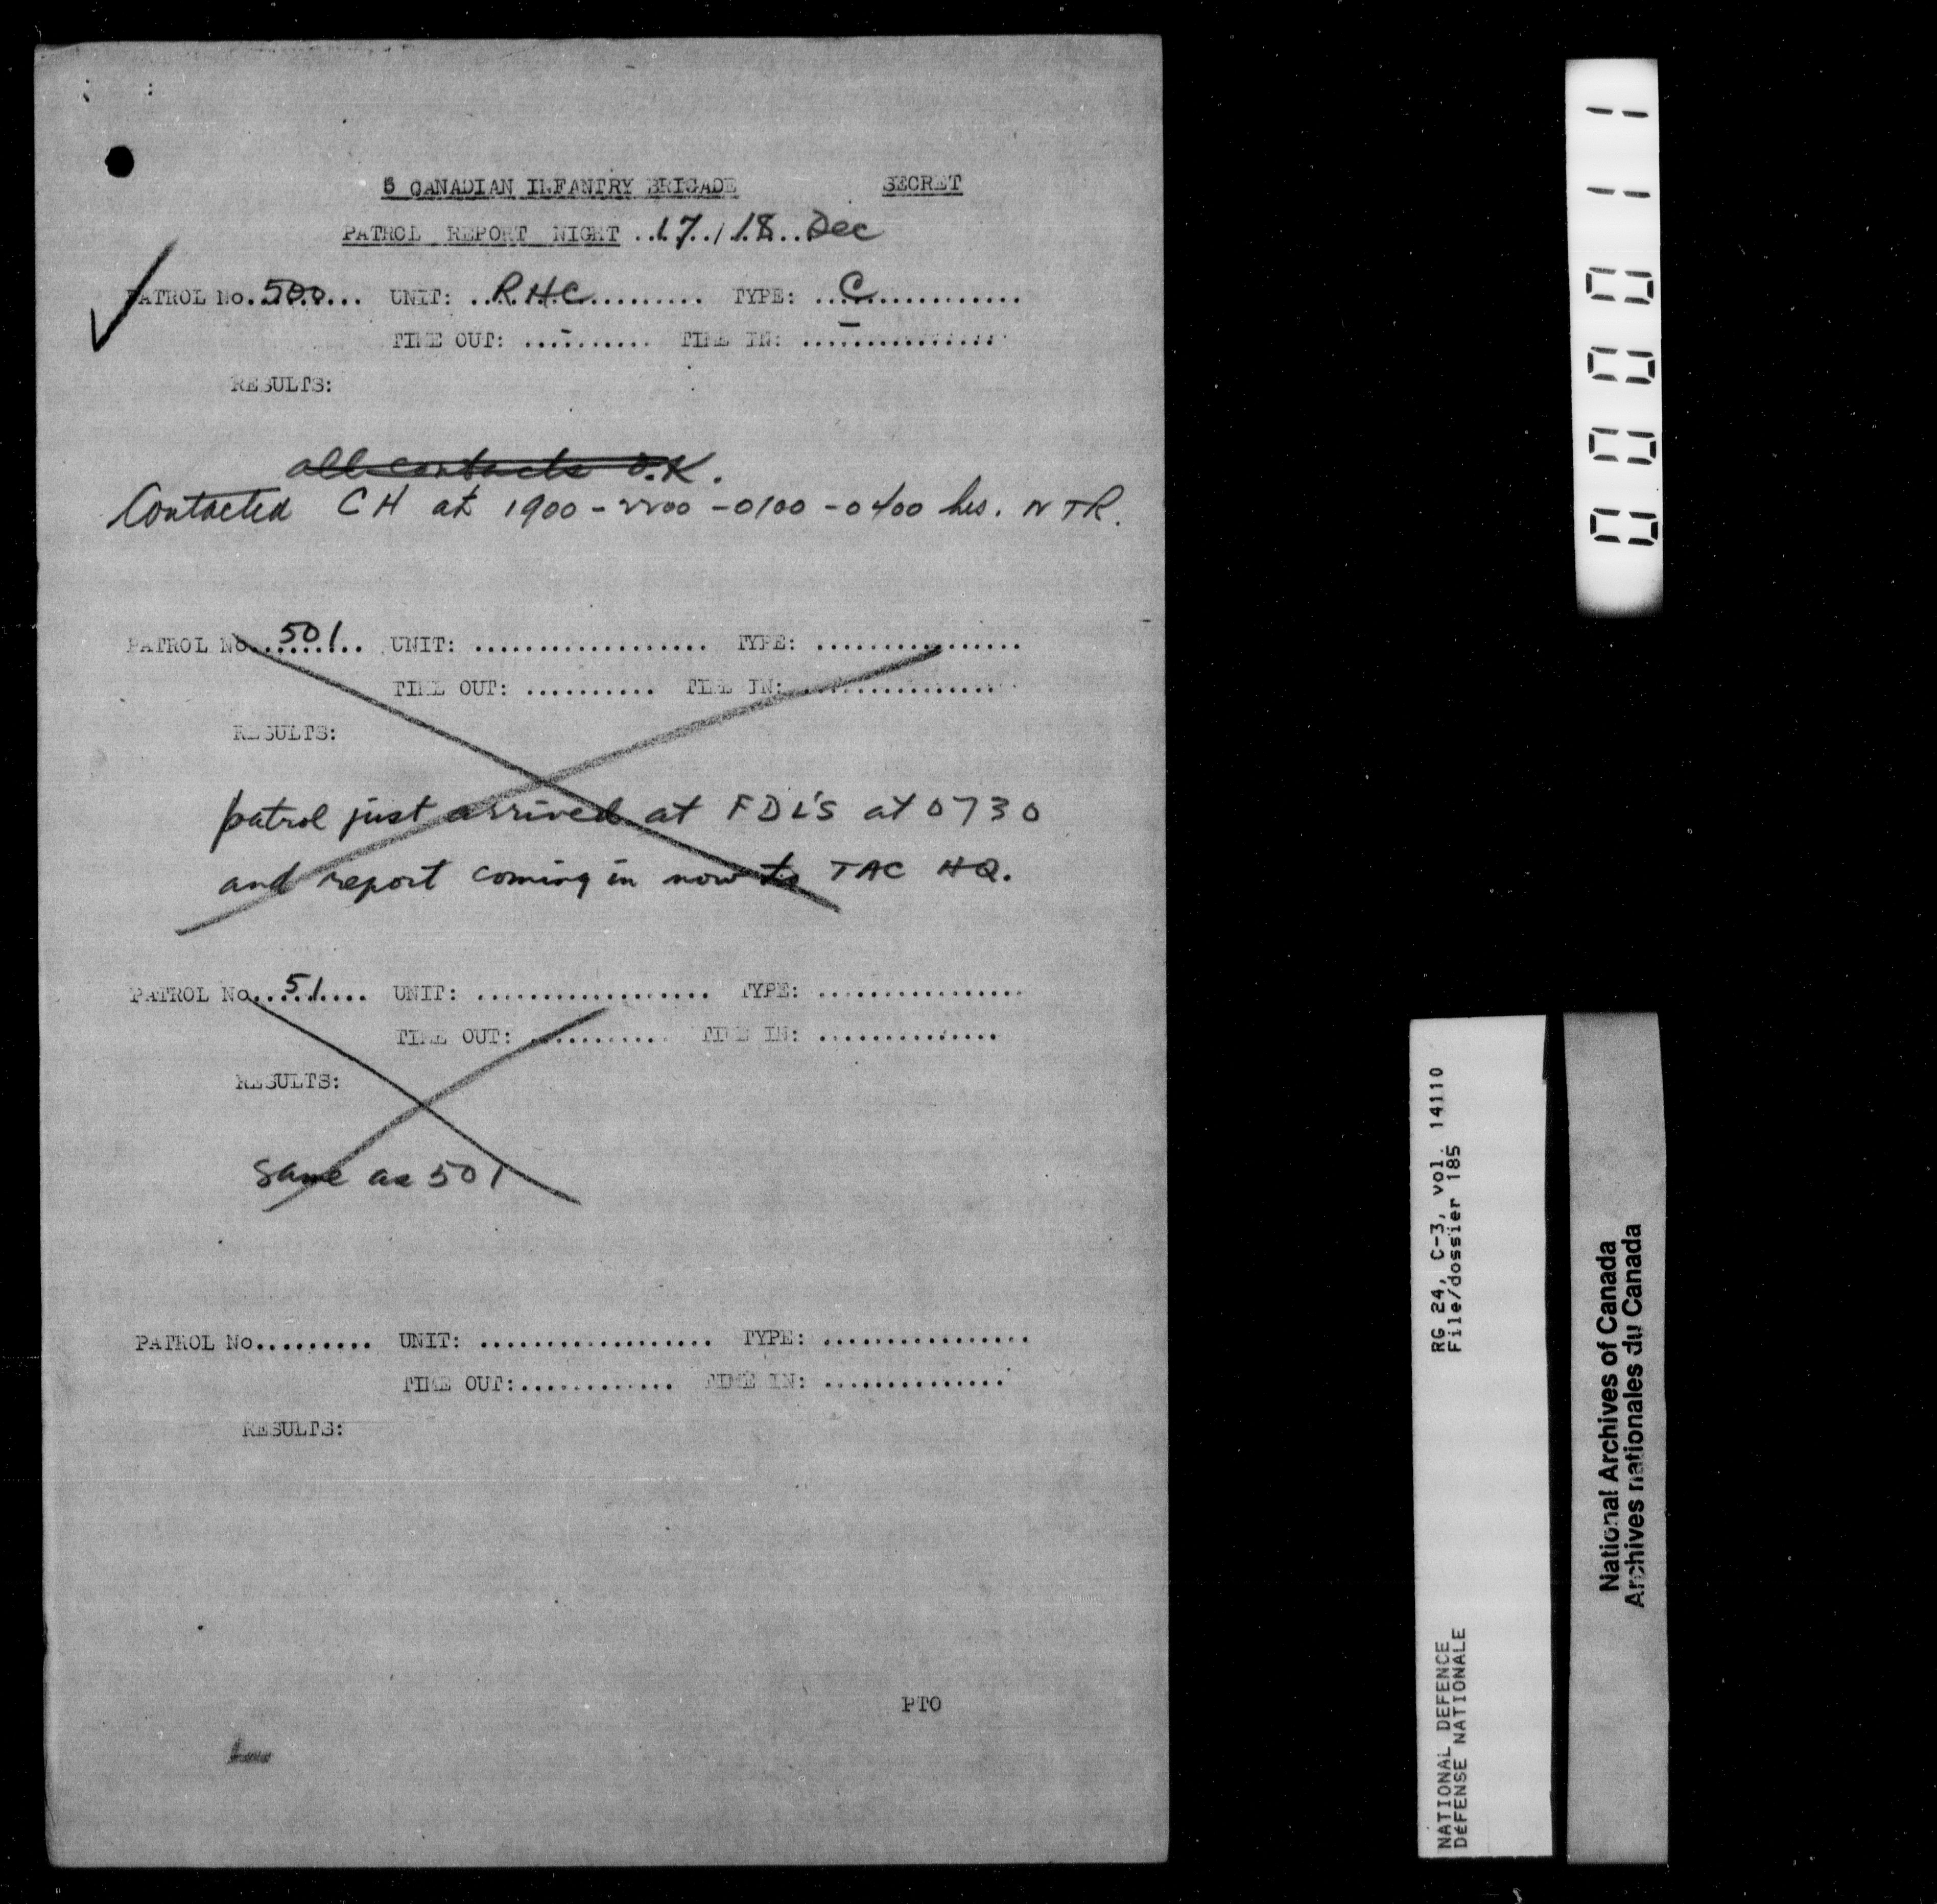 5 CANADIAN INFANTRY BRIGADE SECRET
PATROL REPORT NIGHT ..17./.18..Dec
PATROL No.500... UNIT: ..RHC......... TYPE: ..C.............
TIME OUT: ....-..... TIME IN: ...-............
RESULTS:
all contacts O.K.
Contacted CH at 1900 - 2200 - 0100 - 0400 hrs. NTR.
PATROL No..501.. UNIT: .................. TYPE: ................
TIME OUT: .......... TIME IN: ...............
RESULTS:
patrol just arrived at FDL'S at 0730
and report coming in now to TAC HQ.
PATROL No..51.... UNIT: .................. TYPE: ................
TIME OUT: ........... TIME IN: ..............
RESULTS:
Same as 501
PATROL No......... UNIT: .................. TYPE: ................
TIME OUT:............ TIME IN: ..............
RESULTS:
PTO
000011
RG 24, C-3, vol. 14110
File/dossier 185
NATIONAL DEFENCE
DÉFENSE NATIONALE
National Archives of Canada
Archives nationales du Canada